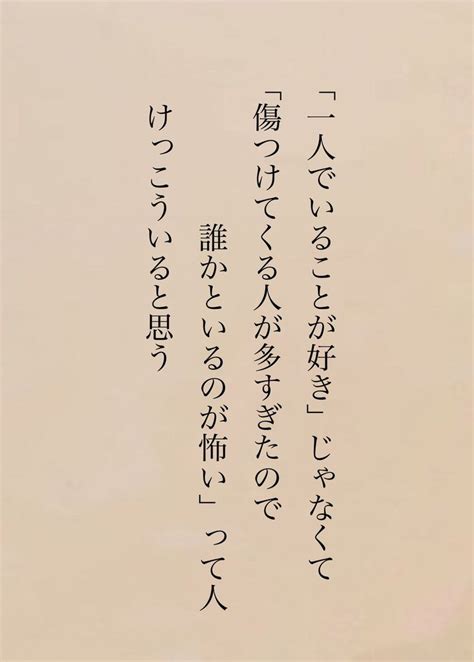 「一人でいることが好き」じゃなくて
「傷つけてくる人が多すぎたので
誰かといるのが怖い」って人
けっこういると思う